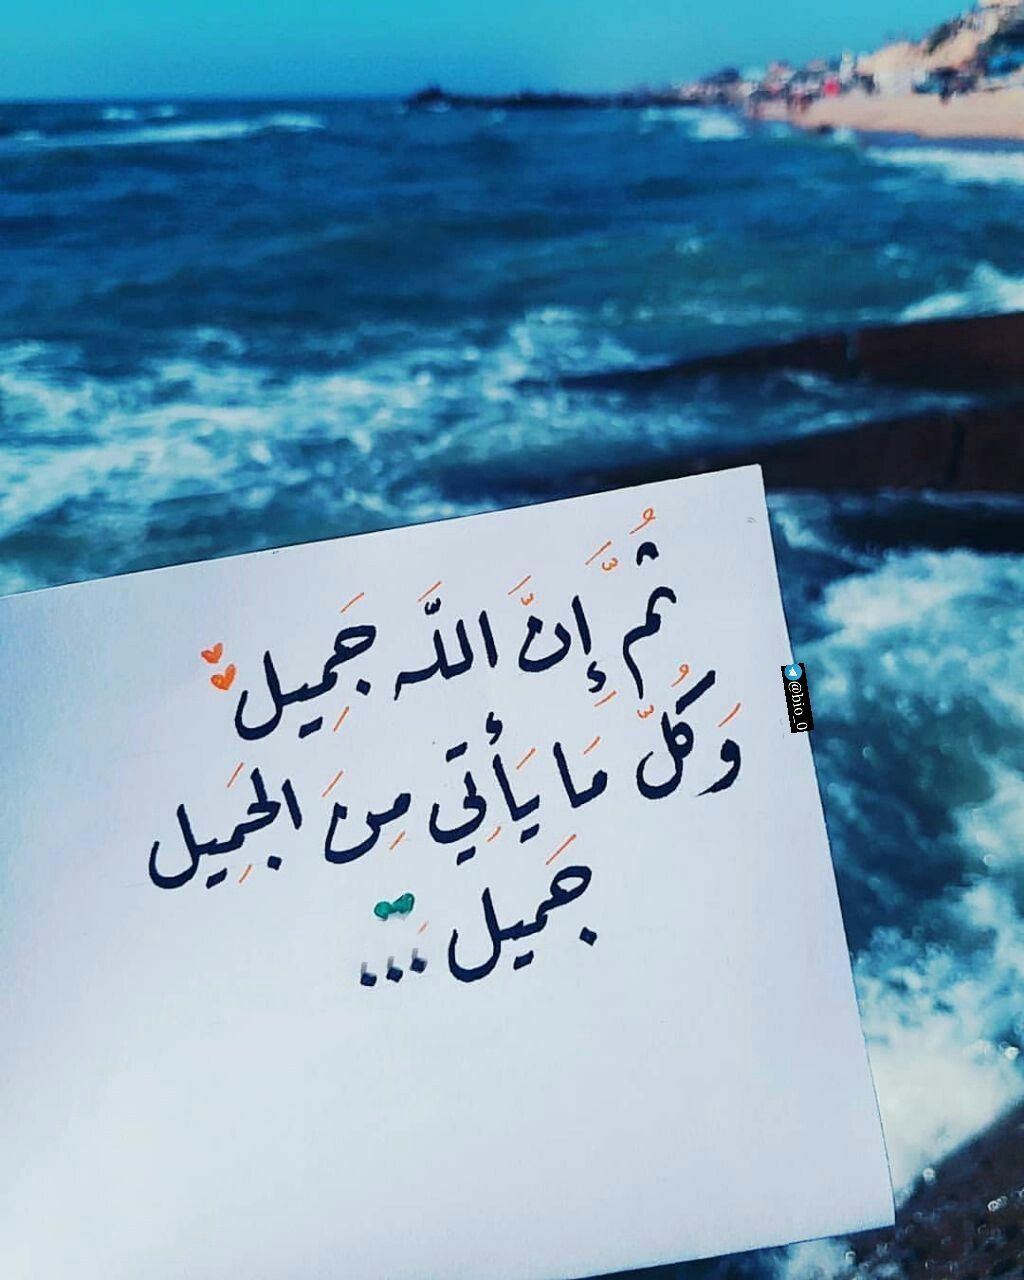 ثُمَّ إِنَّ اللَّه جَمِيل
وَكُلّ مَا يَأتِي مِنَ الجَمِيل
جَميل ...
@bio_0